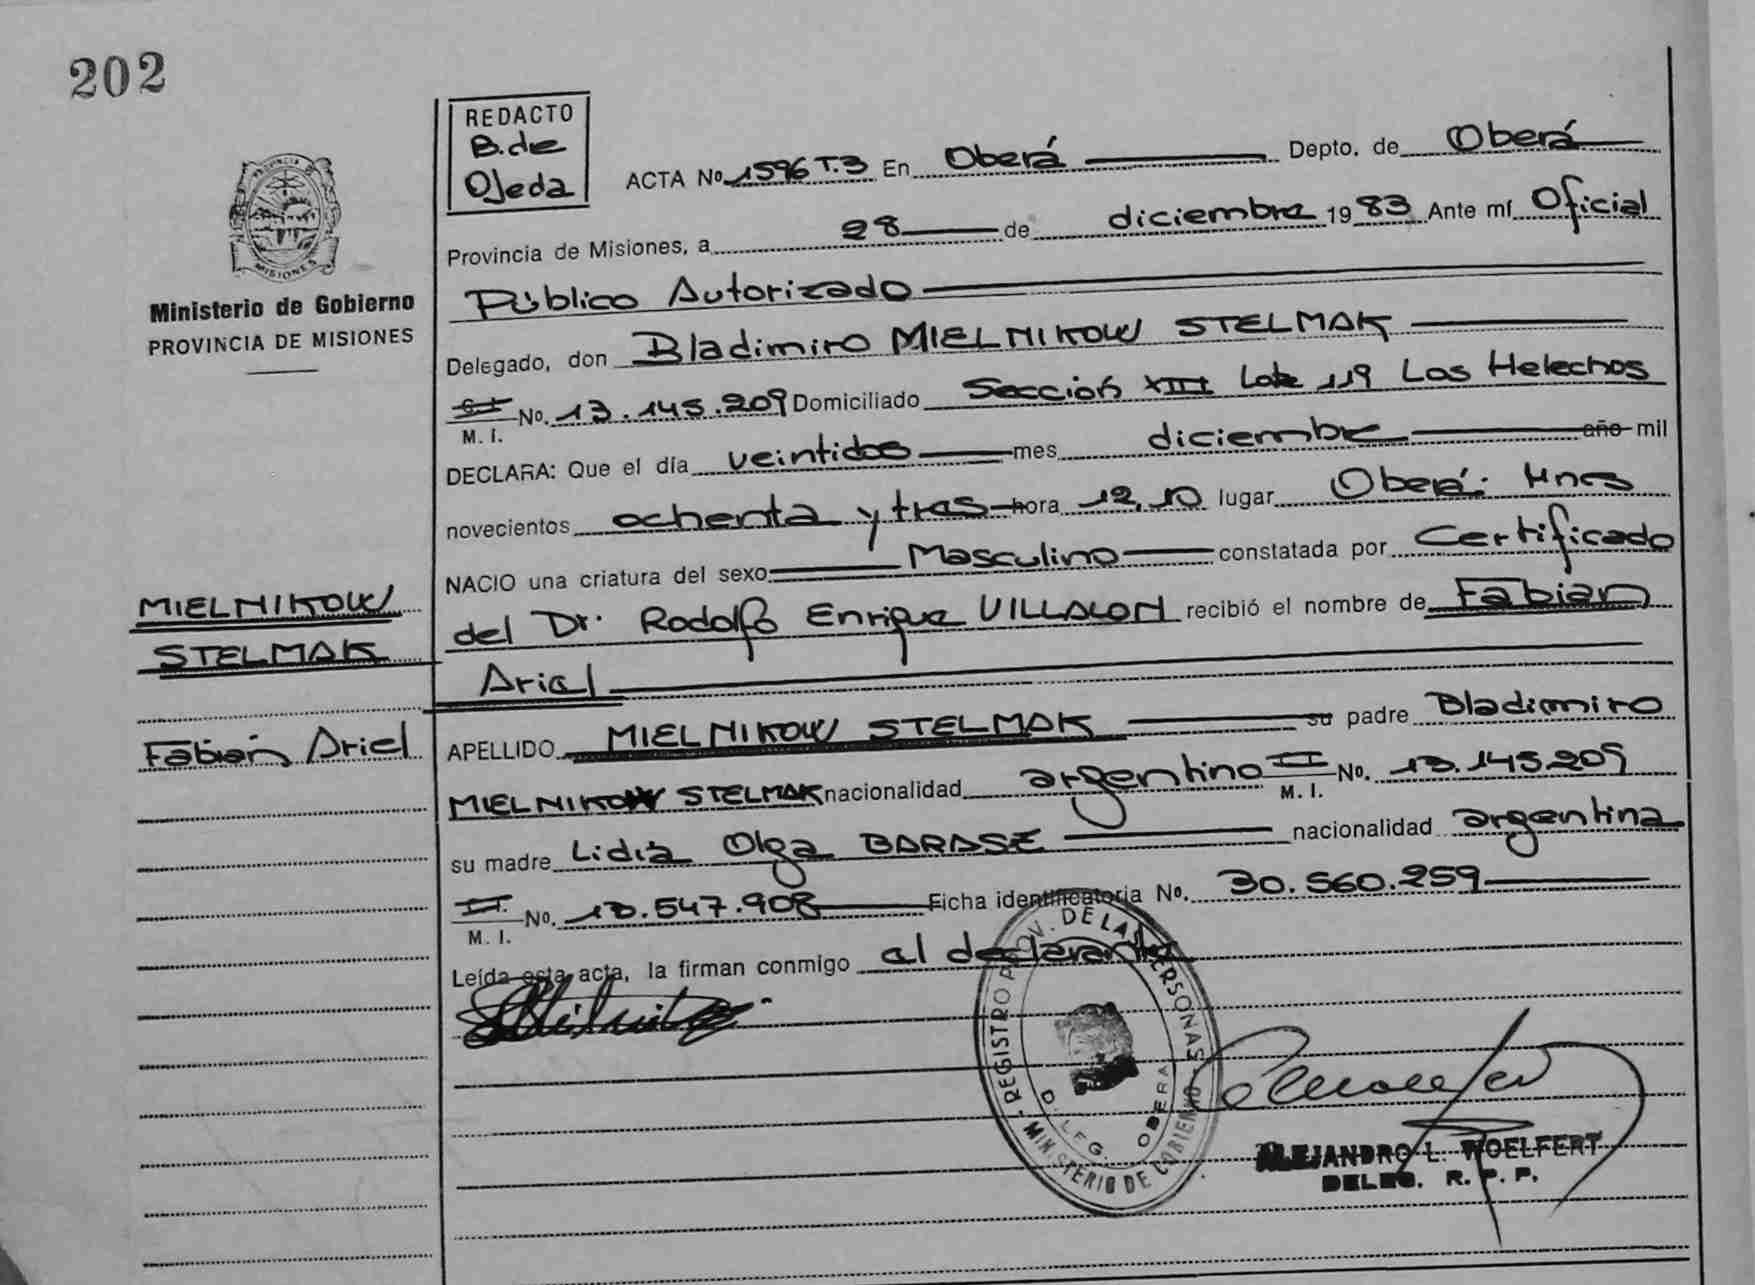 202
REDACTO
B. de
Ojeda
ACTA No 1596 T.3 En Oberá Depto. de Oberá
Provincia de Misiones, a 28 de diciembre 1983 Ante mí Oficial
Público Autorizado
PROVINCIA
MISIONES
Ministerio de Gobierno
PROVINCIA DE MISIONES
Delegado, don Bladimiro MIELNIKOW STELMAK
No. 13.145.209 Domiciliado Sección XIII Lote 119 Los Helechos
M. I.
DECLARA: Que el día veintidos mes diciembre año mil
novecientos ochenta y tres hora 12,10 lugar Oberá: Mnes
NACIO una criatura del sexo Masculino constatada por Certificado
del Dr. Rodolfo Enrique VILLALON recibió el nombre de Fabian
Ariel
MIELNIKOW
STELMAK
Fabian Ariel
APELLIDO MIELNIKOW STELMAK su padre Bladimiro
MIELNIKOW STELMAK nacionalidad argentino No. 13.145.209
M. I.
su madre Lidia Olga BARASZ nacionalidad argentina
No. 10.547.908 Ficha identificatoria No. 30.560.259
M. I.
Leída esta acta, la firman conmigo el declarante
REGISTRO PROV. DE LAS PERSONAS
MINISTERIO DE GOBIERNO
DELEG. OBERA
ALEJANDRO L. WOELFERT
DELEG. R. P. P.